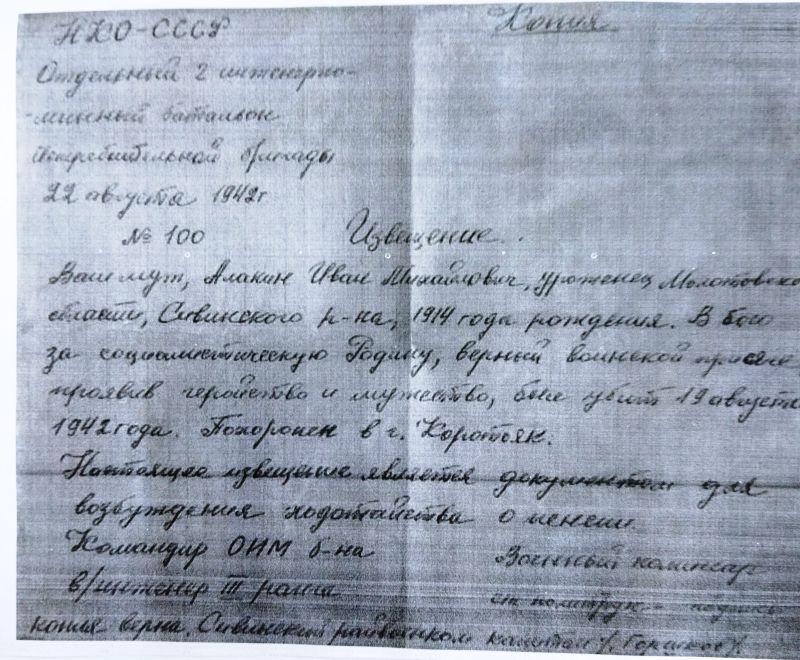 НКО-СССР
Копия
Отдельный 2 инженерно-
-минный батальон
Истребительной бригады
22 августа 1942г
№ 100
Извещение.
Ваш муж, Алакин Иван Михайлович, уроженец Молотовско
области, Сивинского р-на, 1914 года рождения. В бою
за социалистическую Родину, верный воинской присяге
проявив геройство и мужество, был убит 19 августа
1942 года. Похоронен в г. Коротояк.
Настоящее извещение является документом для
возбуждения ходатайства о пенсии.
Командир ОИМ б-на
Военный комиссар
в/инженер III ранга
ст политрук - подпись
копия верна. Сивинский райвоенком капитан /. Горшков/.